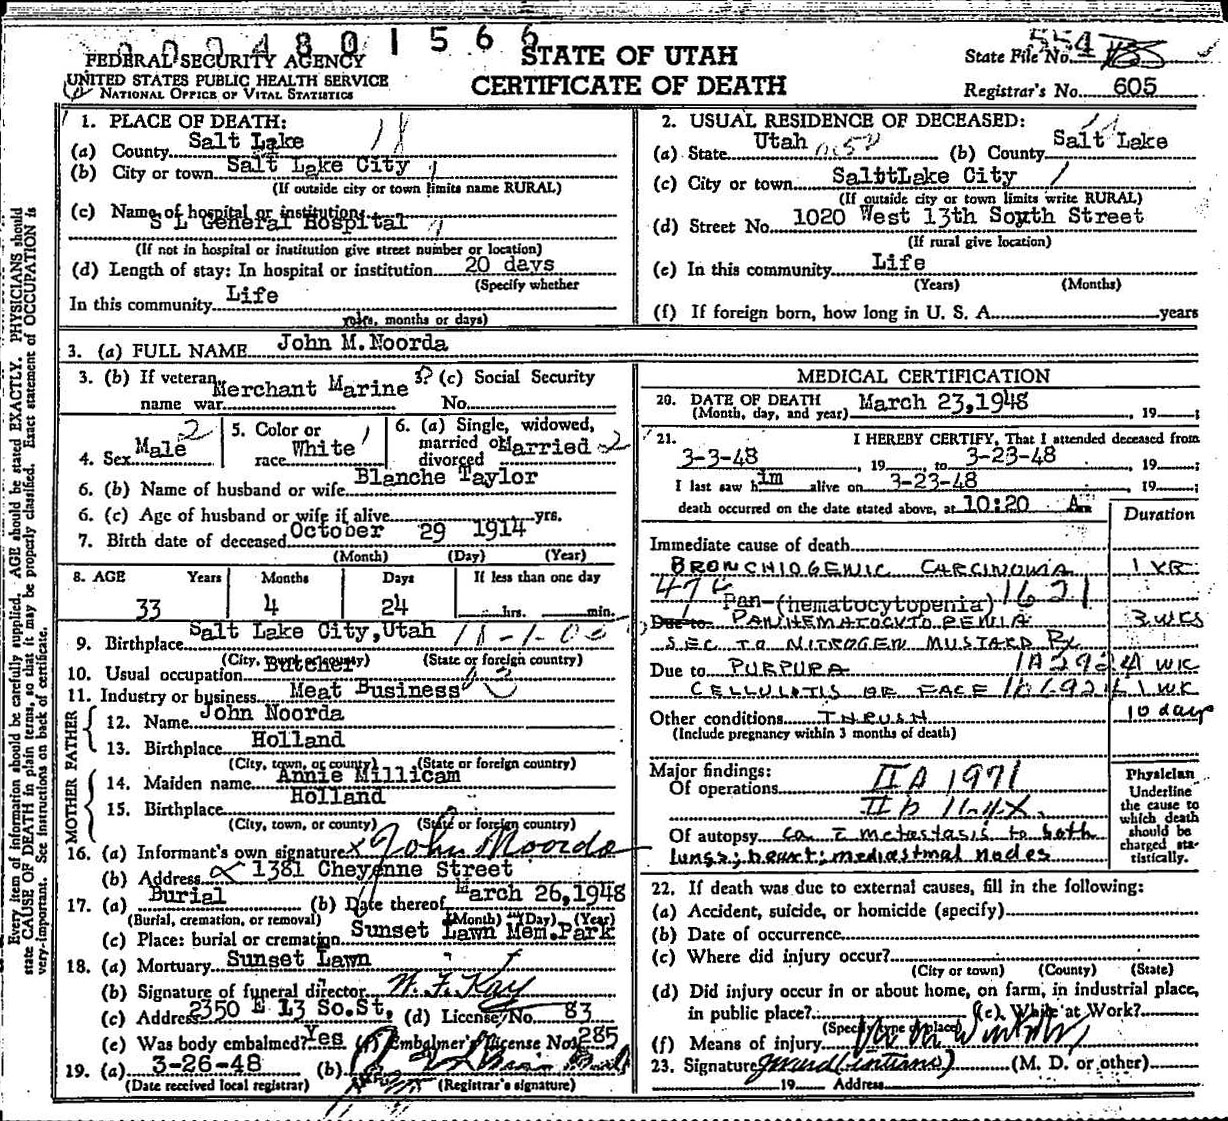 0004801566
FEDERAL SECURITY AGENCY
UNITED STATES PUBLIC HEALTH SERVICE
NATIONAL OFFICE OF VITAL STATISTICS
STATE OF UTAH
CERTIFICATE OF DEATH
State File No. 554
Registrar's No. 605
Every item of information should be carefully supplied. AGE should be stated EXACTLY. PHYSICIANS should
state CAUSE OF DEATH in plain terms, so that it may be properly classified. Exact statement of OCCUPATION is
very important. See instructions on back of certificate.
1. PLACE OF DEATH:
(a) County Salt Lake
(b) City or town Salt Lake City
(If outside city or town limits name RURAL)
(c) Name of hospital or institution:
S L General Hospital
(If not in hospital or institution give street number or location)
(d) Length of stay: In hospital or institution 20 days
(Specify whether
In this community Life
years, months or days)
2. USUAL RESIDENCE OF DECEASED:
(a) State Utah (b) County Salt Lake
(c) City or town SaltLake City
(If outside city or town limits write RURAL)
(d) Street No. 1020 West 13th South Street
(If rural give location)
(e) In this community Life
(Years) (Months)
(f) If foreign born, how long in U. S. A. years
3. (a) FULL NAME John M. Noorda
3. (b) If veteran, Merchant Marine
name war
3? (c) Social Security
No.
4. Sex Male 2
5. Color or
race White 1
6. (a) Single, widowed,
married or Married 2
divorced
6. (b) Name of husband or wife Blanche Taylor
6. (c) Age of husband or wife if alive yrs.
7. Birth date of deceased October 29 1914
(Month) (Day) (Year)
8. AGE Years Months Days If less than one day
33 4 24 hrs. min.
9. Birthplace Salt Lake City, Utah
(City, town or county) (State or foreign country)
10. Usual occupation Butcher
11. Industry or business Meat Business
FATHER
12. Name John Noorda
13. Birthplace Holland
(City, town, or county) (State or foreign country)
MOTHER
14. Maiden name Annie Millicam
15. Birthplace Holland
(City, town, or county) (State or foreign country)
16. (a) Informant's own signature x John Noorda
(b) Address 1381 Cheyenne Street
17. (a) Burial (b) Date thereof March 26, 1948
(Burial, cremation, or removal) (Month) (Day) (Year)
(c) Place: burial or cremation Sunset Lawn Mem. Park
18. (a) Mortuary Sunset Lawn
(b) Signature of funeral director W. F. Kay
(c) Address 2350 E 13 So. St. (d) License No. 83
(e) Was body embalmed? Yes (f) Embalmer's License No. 285
19. (a) 3-26-48 (b)
(Date received local registrar) (Registrar's signature)
MEDICAL CERTIFICATION
20. DATE OF DEATH
(Month, day, and year) March 23, 1948, 19 ;
21. I HEREBY CERTIFY, That I attended deceased from
3-3-48, 19 to 3-23-48, 19 ;
I last saw him alive on 3-23-48, 19 ;
death occurred on the date stated above, at 10:20 A m
Duration
Immediate cause of death
BRONCHIOGENIC CARCINOMA 1 YR
Pan-(hematocytopenia) 1621
Due to PANHEMATOCYTOPENIA 3 WKS
SEC TO NITROGEN MUSTARD RX
Due to PURPURA 1 WK
CELLULITIS OF FACE 1 WK
Other conditions THRUSH 10 days
(Include pregnancy within 3 months of death)
Major findings:
Of operations II A 1971
Of autopsy ca c metastasis to both
lungs; heart; mediastinal nodes
Physician
Underline
the cause to
which death
should be
charged sta-
tistically.
22. If death was due to external causes, fill in the following:
(a) Accident, suicide, or homicide (specify)
(b) Date of occurrence
(c) Where did injury occur?
(City or town) (County) (State)
(d) Did injury occur in or about home, on farm, in industrial place,
in public place? (e) While at Work?
(Specify type of place)
(f) Means of injury
23. Signature (M. D. or other)
19 Address